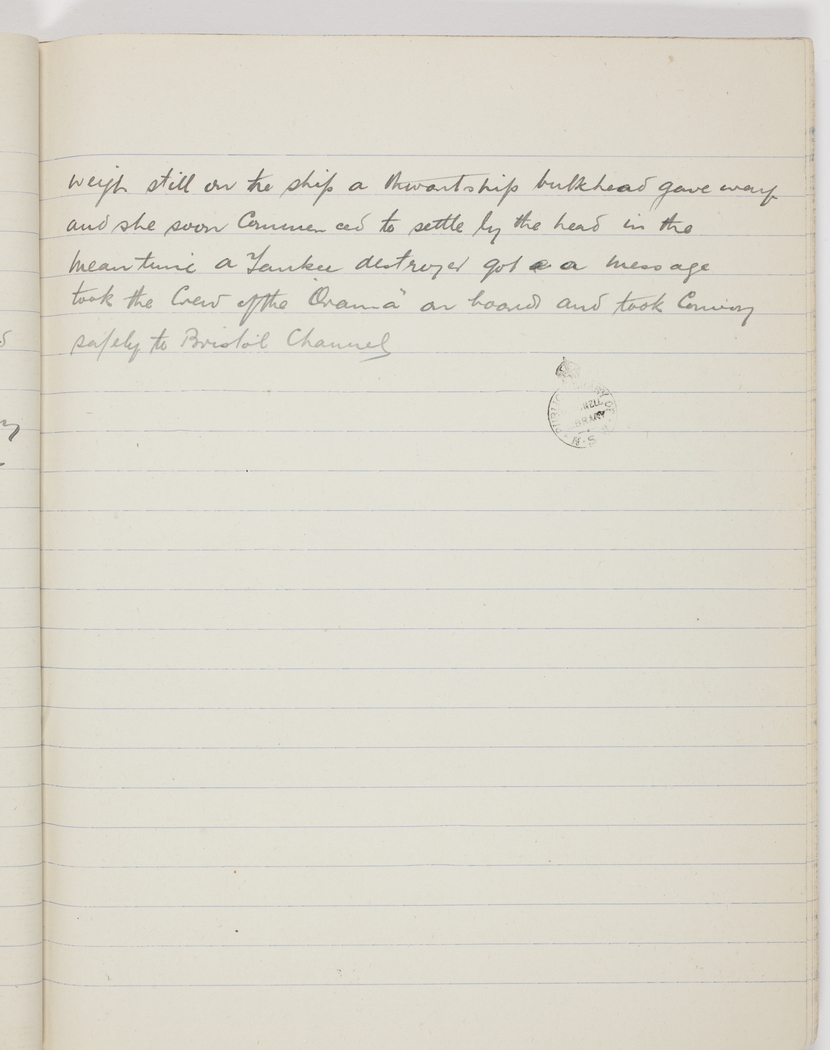 weigh still on the ship a thwartship bulkhead gave way
and she soon Commenced to settle by the head in the
meantime a Yankee destroyer got a a message
took the Crew of the "Orama" on board and took Convoy
safely to Bristol Channel
PUBLIC LIBRARY OF N.S.W.
MITCHELL LIBRARY